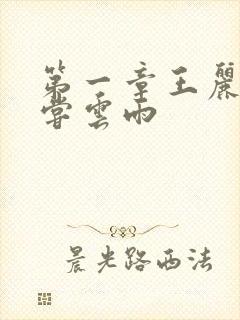 第一章王麗
嘗雲雨
晨光路西法